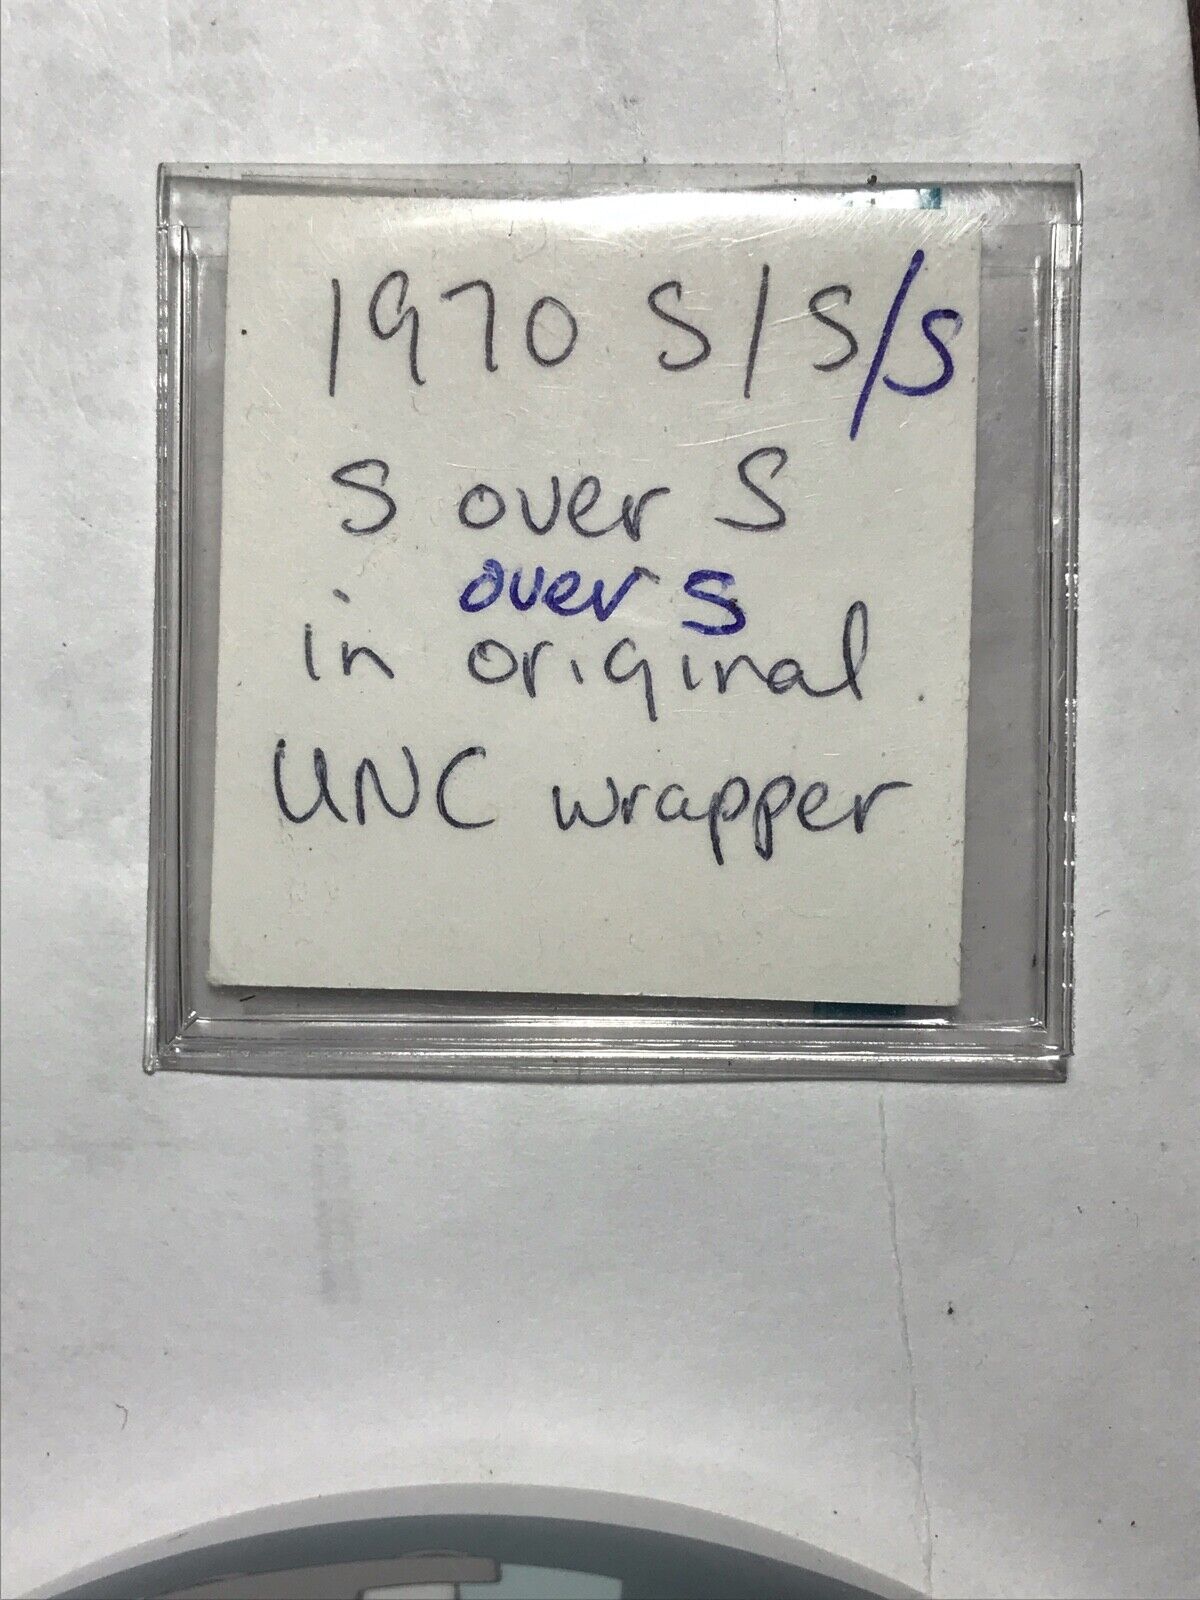 1970 S/S/S
S over S
over S
in original
UNC wrapper